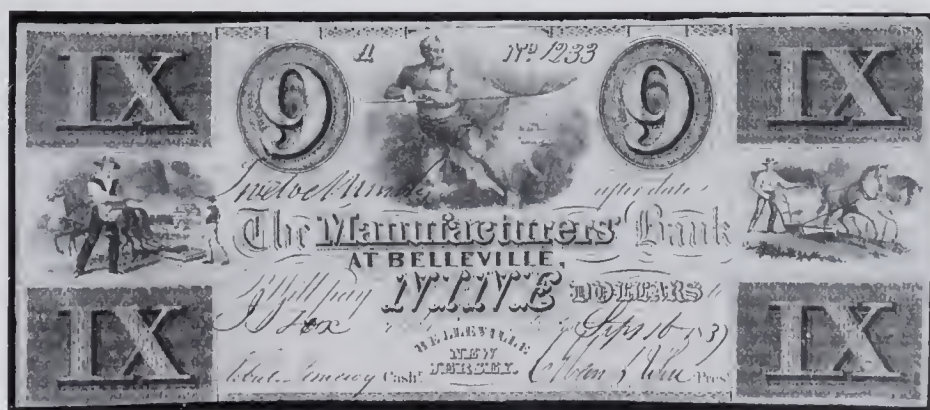 IX 9 A No 1233 9 IX
Twelve Months after date
The Manufacturers' Bank
AT BELLEVILLE,
Will pay NINE DOLLARS
Fox Sept 16 1837
IX BELLEVILLE IX
NEW
JERSEY.
Cashr. Pres